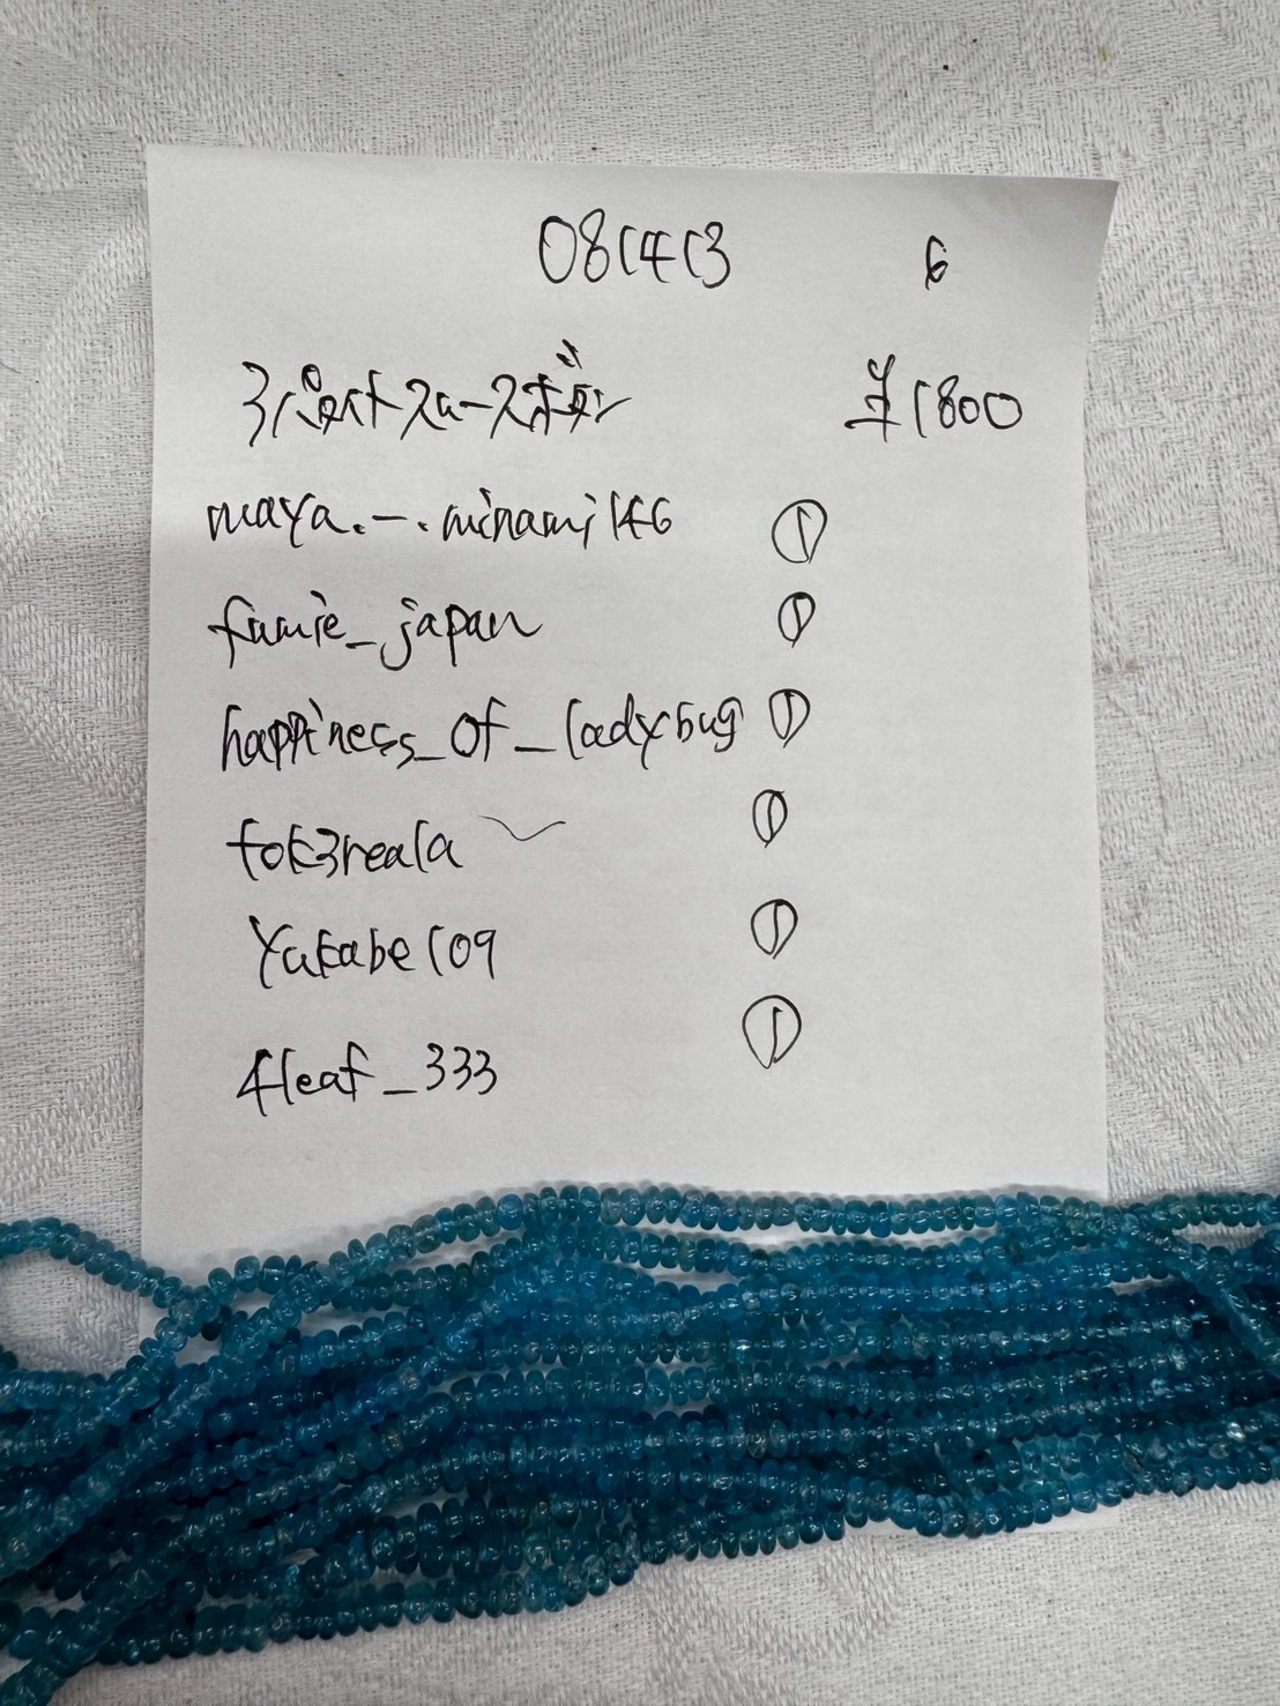 081413 6
¥1800
maya.-.minami146 ①
fumie_japan ①
happiness_of_ladybug ①
tok3reala ①
Yakabe109 ①
4leaf_333 ①